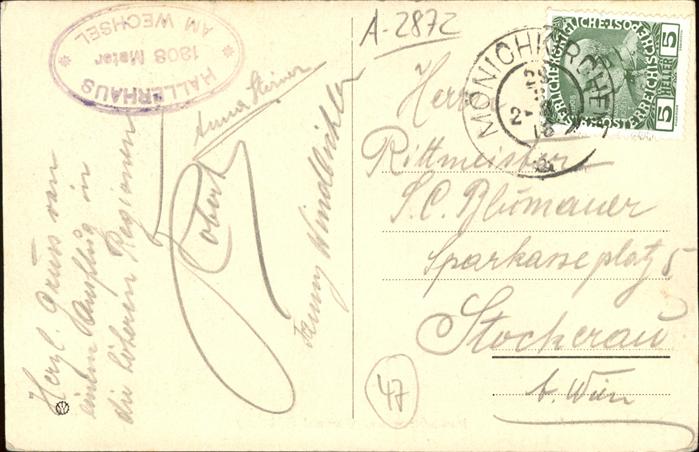 HALLERHAUS
1308 Meter
AM WECHSEL
A-2872
Herzl. Gruss von
einem Ausflug in
die höheren Regionen
Robert
Anna Steiner
Fanny Windbichler
MÖNICHKIRCHEN
5 HELLER 5
Herrn
Rittmeister
S.C. Blumauer
Sparkasseplatz 5
Stockerau
b. Wien
47